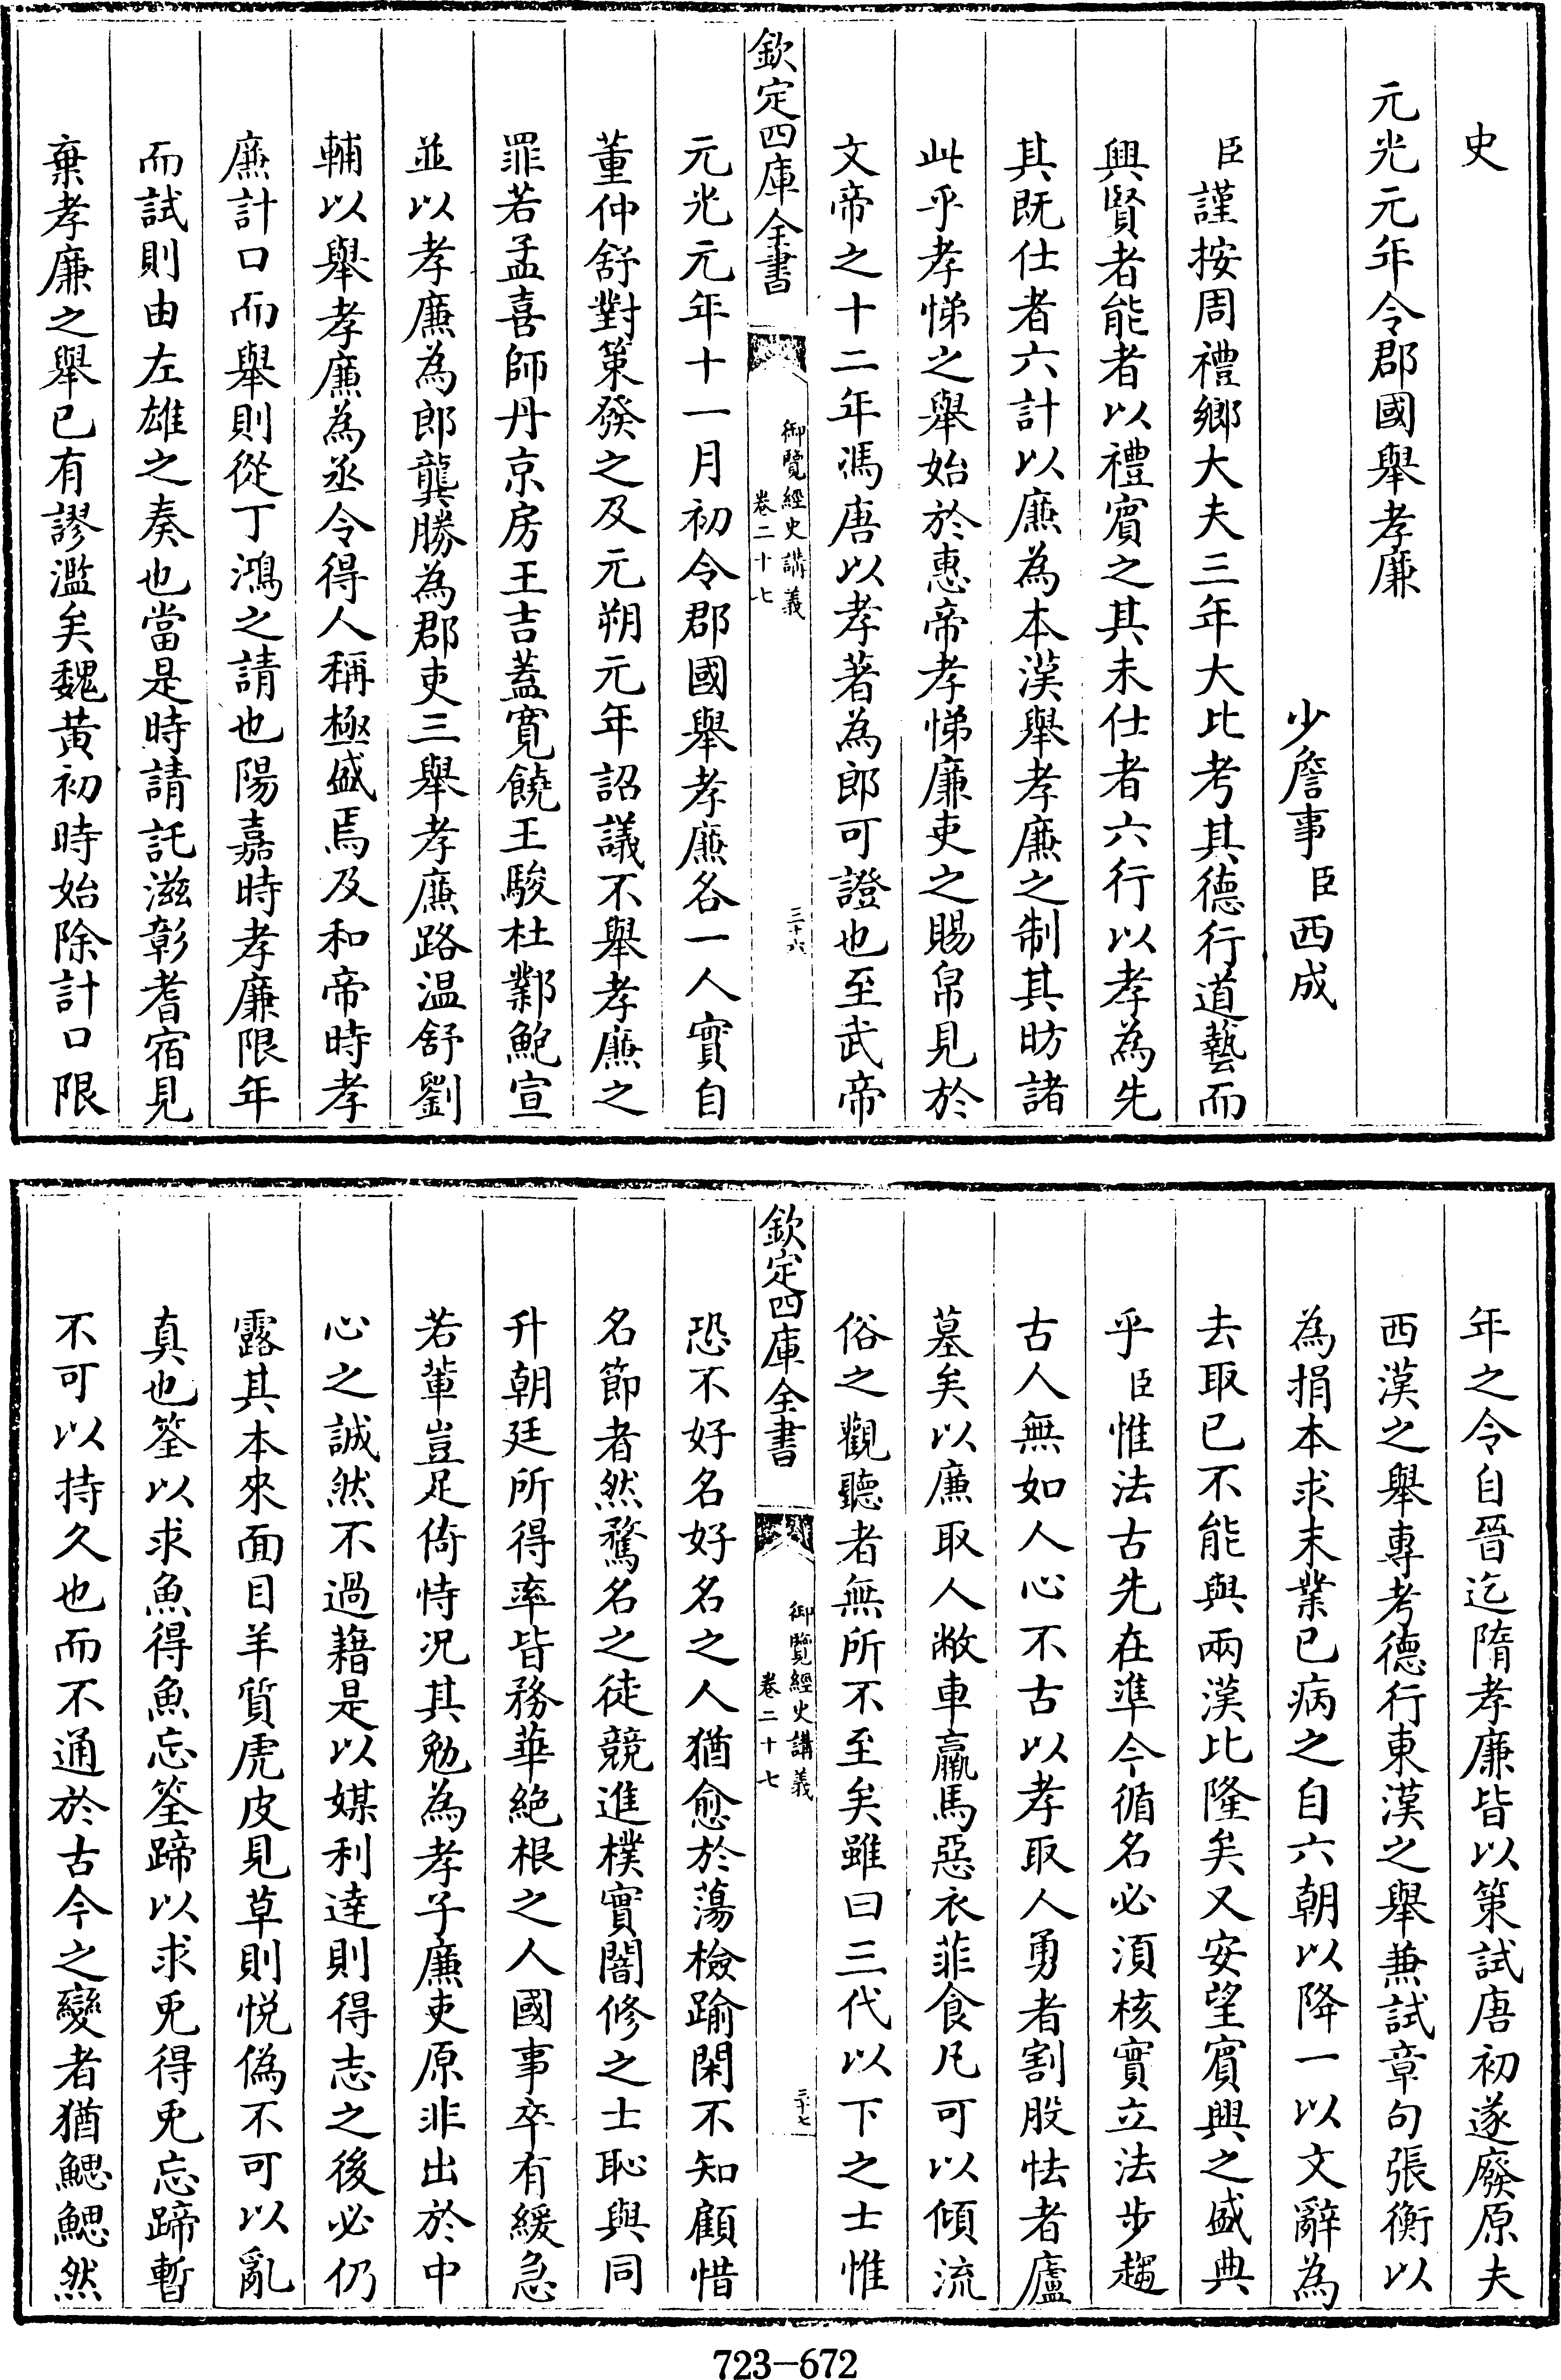 史
元光元年令郡國舉孝廉
少詹事臣西成
臣謹按周禮鄉大夫三年大比考其德行道藝而
興賢者能者以禮賓之其未仕者六行以孝為先
其既仕者六計以廉為本漢舉孝廉之制其昉諸
此乎孝悌之舉始於惠帝孝悌廉吏之賜帛見於
文帝之十二年馮唐以孝著為郎可證也至武帝
欽定四庫全書
御覽經史講義
卷二十七
三十六
元光元年十一月初令郡國舉孝廉各一人實自
董仲舒對策發之及元朔元年詔議不舉孝廉之
罪若孟喜師丹京房王吉蓋寬饒王駿杜鄴鮑宣
並以孝廉為郎龔勝為郡吏三舉孝廉路温舒劉
輔以舉孝廉為丞令得人稱極盛焉及和帝時孝
廉計口而舉則從丁鴻之請也陽嘉時孝廉限年
而試則由左雄之奏也當是時請託滋彰耆宿見
棄孝廉之舉已有謬濫矣魏黃初時始除計口限
年之令自晉迄隋孝廉皆以策試唐初遂廢原夫
西漢之舉專考德行東漢之舉兼試章句張衡以
為捐本求末業已病之自六朝以降一以文辭為
去取已不能與兩漢比隆矣又安望賓興之盛典
乎臣惟法古先在準今循名必須核實立法步趨
古人無如人心不古以孝取人勇者割股怯者廬
墓矣以廉取人敝車羸馬惡衣菲食凡可以傾流
俗之觀聽者無所不至矣雖曰三代以下之士惟
欽定四庫全書
御覽經史講義
卷二十七
三十七
恐不好名好名之人猶愈於蕩檢踰閑不知顧惜
名節者然騖名之徒競進樸實闇修之士恥與同
升朝廷所得率皆務華絕根之人國事卒有緩急
若輩豈足倚恃况其勉為孝子廉吏原非出於中
心之誠然不過藉是以媒利達則得志之後必仍
露其本來面目羊質虎皮見草則悦偽不可以亂
真也筌以求魚得魚忘筌蹄以求兎得兎忘蹄暫
不可以持久也而不通於古今之變者猶鰓鰓然
723-672